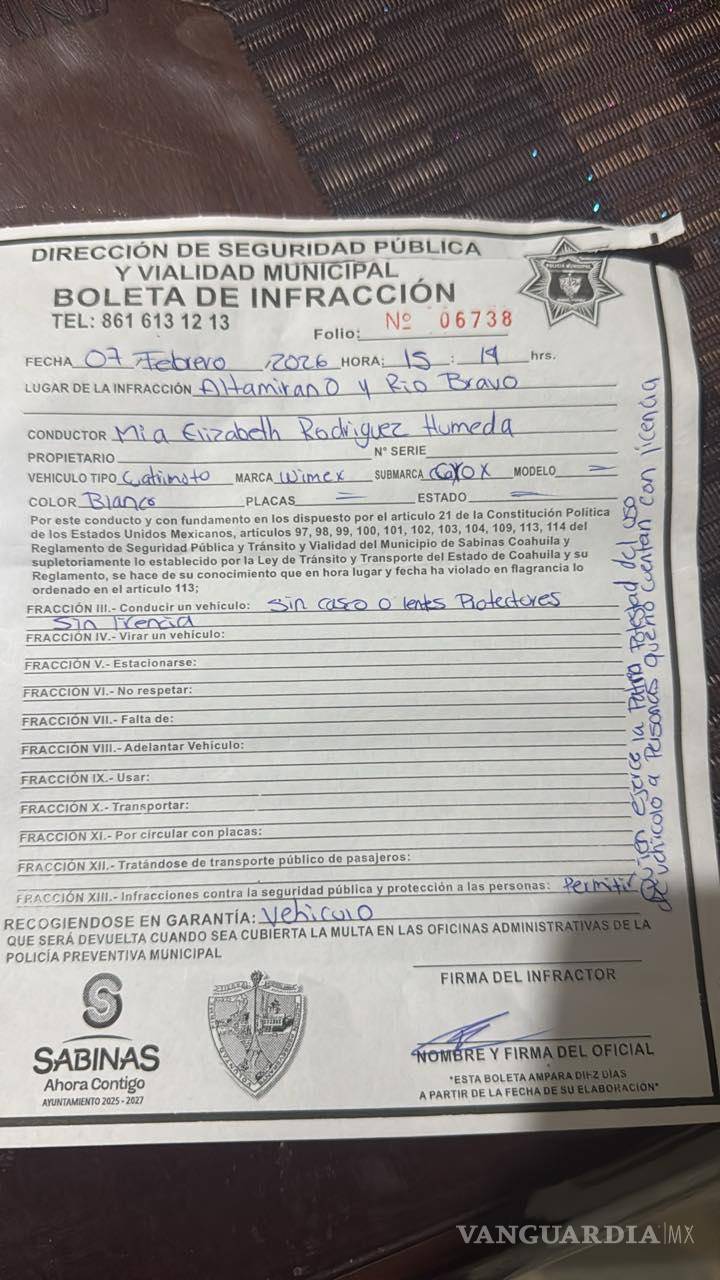 DIRECCIÓN DE SEGURIDAD PÚBLICA
Y VIALIDAD MUNICIPAL
BOLETA DE INFRACCIÓN
TEL: 861 613 12 13
Folio: Nº 06738
POLICIA MUNICIPAL
FECHA 07 Febrero, 2026 HORA: 15 : 19 hrs.
LUGAR DE LA INFRACCIÓN Altamirano y Rio Bravo
CONDUCTOR Mia Elizabeth Rodriguez Humeda
PROPIETARIO Nº SERIE
VEHICULO TIPO Catimoto MARCA Wimex SUBMARCA MODELO =
COLOR Blanco PLACAS = ESTADO =
Por este conducto y con fundamento en los dispuesto por el articulo 21 de la Constitución Política
de los Estados Unidos Mexicanos, articulos 97, 98, 99, 100, 101, 102, 103, 104, 109, 113, 114 del
Reglamento de Seguridad Pública y Tránsito y Vialidad del Municipio de Sabinas Coahuila y
supletoriamente lo establecido por la Ley de Tránsito y Transporte del Estado de Coahuila y su
Reglamento, se hace de su conocimiento que en hora lugar y fecha ha violado en flagrancia lo
ordenado en el articulo 113;
FRACCIÓN III.- Conducir un vehículo: Sin casco o lentes Protectores
Sin licencia
FRACCIÓN IV.- Virar un vehículo:
FRACCIÓN V.- Estacionarse:
FRACCIÓN VI.- No respetar:
FRACCIÓN VII.- Falta de:
FRACCIÓN VIII.- Adelantar Vehículo:
FRACCIÓN IX.- Usar:
FRACCIÓN X.- Transportar:
FRACCIÓN XI.- Por circular con placas:
FRACCIÓN XII.- Tratándose de transporte público de pasajeros:
FRACCIÓN XIII.- Infracciones contra la seguridad pública y protección a las personas: Permitir
Quien ejerce la Patria Potestad del uso
de vehiculo a Personas que no cuentan con licencia
RECOGIENDOSE EN GARANTÍA: Vehiculo
QUE SERÁ DEVUELTA CUANDO SEA CUBIERTA LA MULTA EN LAS OFICINAS ADMINISTRATIVAS DE LA
POLICÍA PREVENTIVA MUNICIPAL
FIRMA DEL INFRACTOR
NOMBRE Y FIRMA DEL OFICIAL
*ESTA BOLETA AMPARA DIEZ DÍAS
A PARTIR DE LA FECHA DE SU ELABORACIÓN*
SABINAS
Ahora Contigo
AYUNTAMIENTO 2025 - 2027
VANGUARDIA|MX